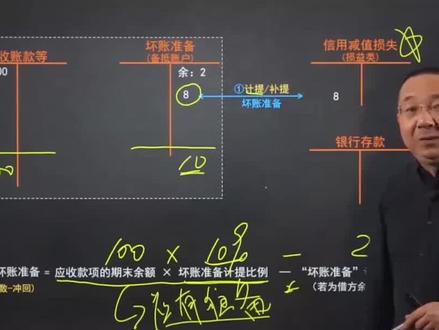 收账款等
坏账准备
(备抵账户)
信用减值损失
(损益类)
00
余：2
8
①计提/补提
坏账准备
8
10
银行存款
100 × 10% — 2
坏账准备 = 应收款项的期末余额 × 坏账准备计提比例 — “坏账准备”
数-冲回)
(若为借方余